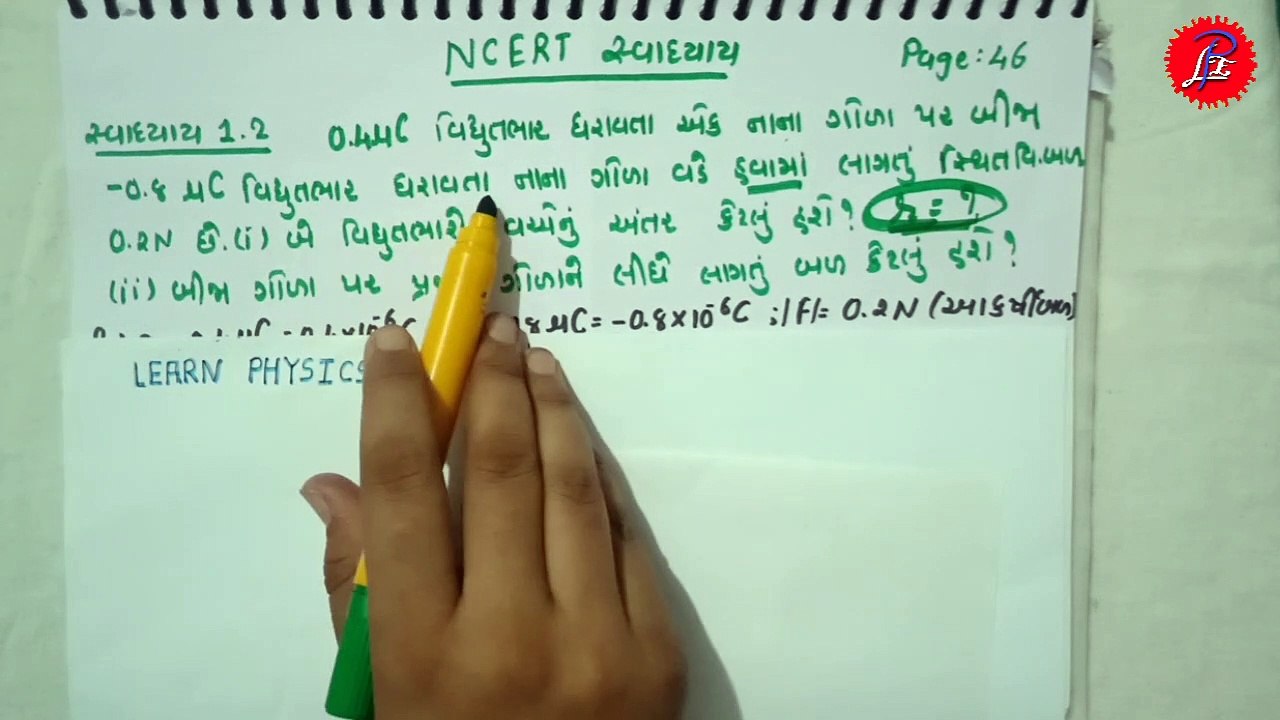 NCERT સ્વાધ્યાય
Page:46
સ્વાધ્યાય 1.2 0.4μC વિદ્યુતભાર ધરાવતા એક નાના ગોળા પર બીજા
-0.8 μC વિદ્યુતભાર ધરાવતા નાના ગોળા વડે હવામાં લાગતું સ્થિતવિ.બળ
0.2N છે.(i) બે વિદ્યુતભારો વચ્ચેનું અંતર કેટલું હશે? r = ?
(ii) બીજા ગોળા પર ગોળાને લીધે લાગતું બળ કેટલું હશે?
8 μC = -0.8×10⁻⁶C ; |F|= 0.2N (આકર્ષીબળ)
LEARN PHYSICS